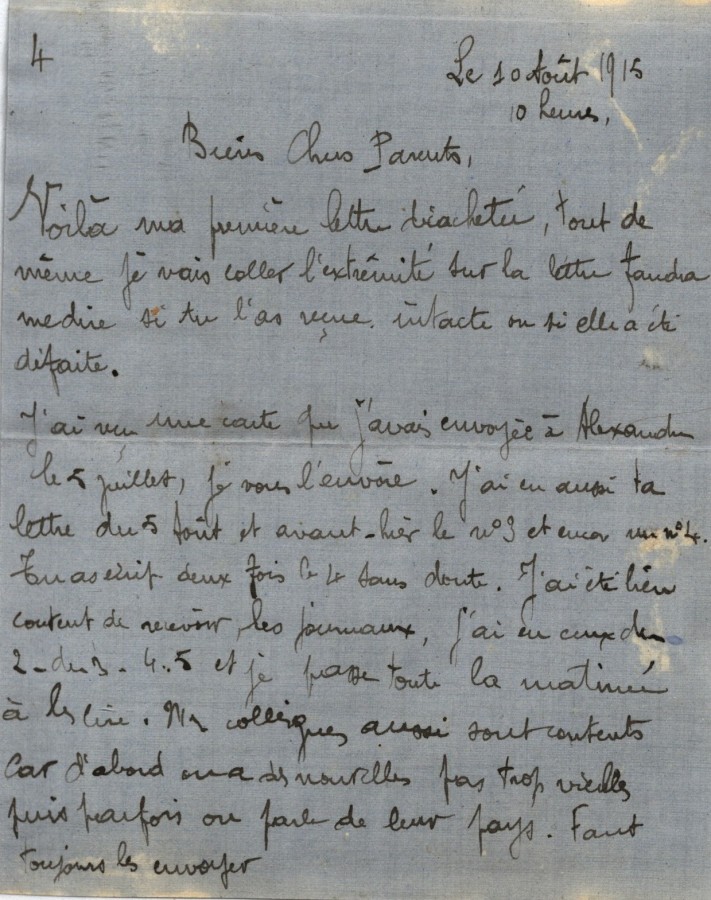 4
Le 10 Août 1915
10 heures,
Biens Chers Parents,
Voilà ma première lettre décachetée, tout de
même je vais coller l'extrémité sur la lettre faudra
me dire si tu l'as reçue intacte ou si elle a été
défaite.
J'ai reçu une carte que j'avais envoyée à Alexandre
le 5 juillet, je vous l'envoie. J'ai eu aussi ta
lettre du 5 Août et avant-hier le n°3 et encor un n°4.
Tu as écrit deux fois le 4 sans doute. J'ai été bien
content de recevoir les journaux, j'ai eu ceux du
2 - du 3 - 4 - 5 et je passe toute la matinée
à les lire. Mes collègues aussi sont contents
car d'abord on a des nouvelles pas trop vieilles
puis parfois on parle de leur pays. Faut
toujours les envoyer